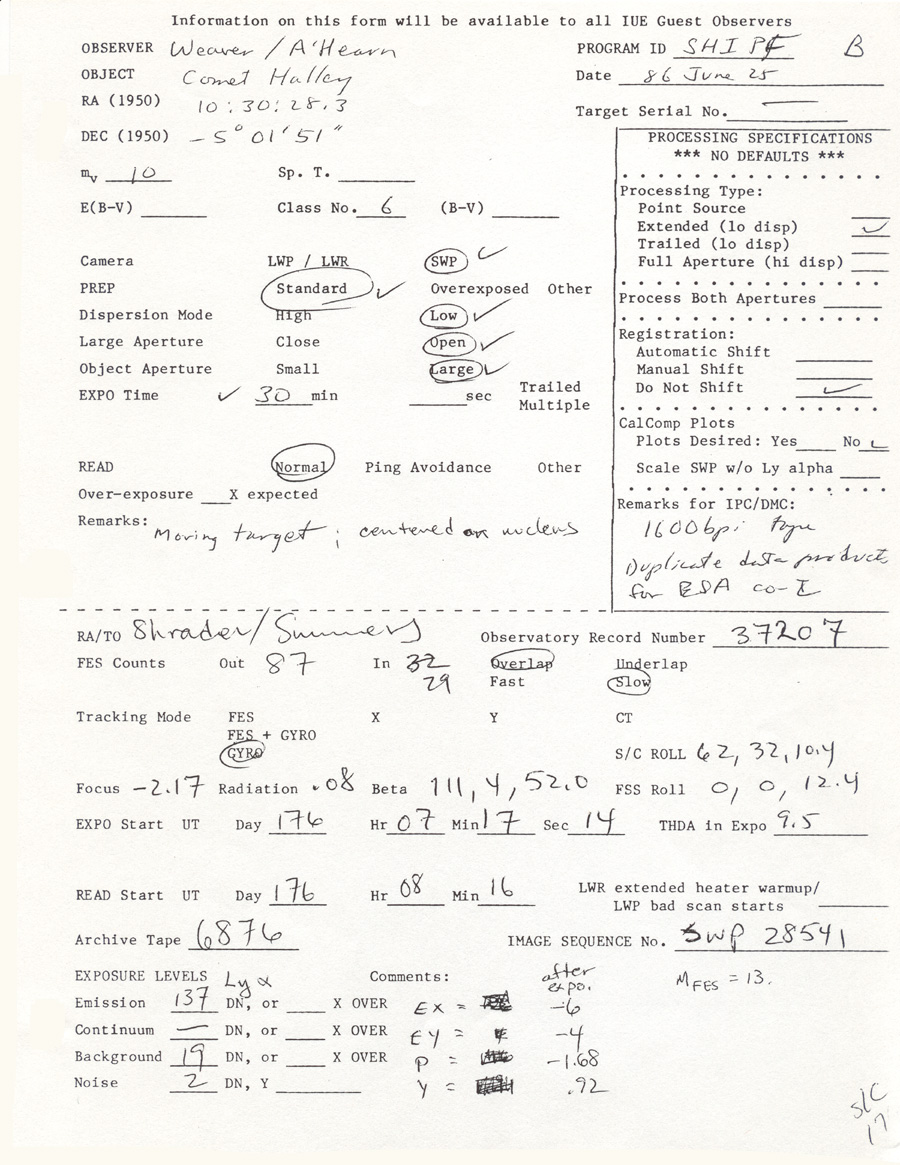 Information on this form will be available to all IUE Guest Observers
OBSERVER Weaver / A'Hearn
PROGRAM ID SHIPF B
OBJECT Comet Halley
Date 86 June 25
RA (1950) 10:30:28.3
Target Serial No. —
DEC (1950) -5° 01' 51"
PROCESSING SPECIFICATIONS
*** NO DEFAULTS ***
mv 10 Sp. T.
E(B-V) Class No. 6 (B-V)
Processing Type:
Point Source
Extended (lo disp) ✓
Trailed (lo disp)
Full Aperture (hi disp)
Process Both Apertures
Registration:
Automatic Shift
Manual Shift
Do Not Shift ✓
CalComp Plots
Plots Desired: Yes No ✓
Scale SWP w/o Ly alpha
Remarks for IPC/DMC:
1600bpi tape
Duplicate data products
for ESA co-I
Camera LWP / LWR SWP ✓
PREP Standard ✓ Overexposed Other
Dispersion Mode High Low ✓
Large Aperture Close Open ✓
Object Aperture Small Large ✓
EXPO Time ✓ 30 min sec Trailed
Multiple
READ Normal Ping Avoidance Other
Over-exposure X expected
Remarks: Moving target; centered on nucleus
RA/TO Shrader/Summers Observatory Record Number 37207
FES Counts Out 87 In 32 Overlap Underlap
29 Fast Slow
Tracking Mode FES X Y CT
FES + GYRO
GYRO
S/C ROLL 62, 32, 10.4
Focus -2.17 Radiation .08 Beta 111, 4, 52.0 FSS Roll 0, 0, 12.4
EXPO Start UT Day 176 Hr 07 Min 17 Sec 14 THDA in Expo 9.5
READ Start UT Day 176 Hr 08 Min 16 LWR extended heater warmup/
LWP bad scan starts
Archive Tape 6876 IMAGE SEQUENCE No. SWP 28541
EXPOSURE LEVELS Ly α Comments: after expo. MFES = 13.
Emission 137 DN, or X OVER EX = -6
Continuum — DN, or X OVER EY = -4
Background 19 DN, or X OVER P = -1.68
Noise 2 DN, Y Y = .92
S/C
17